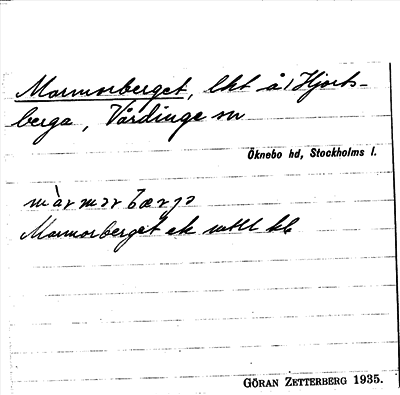 Marmorberget, lht å 1 Hjorts-
berga, Vårdinge sn
Öknebo hd, Stockholms l.
màrmərbærjə
Marmorberget ek
GÖRAN ZETTERBERG 1935.